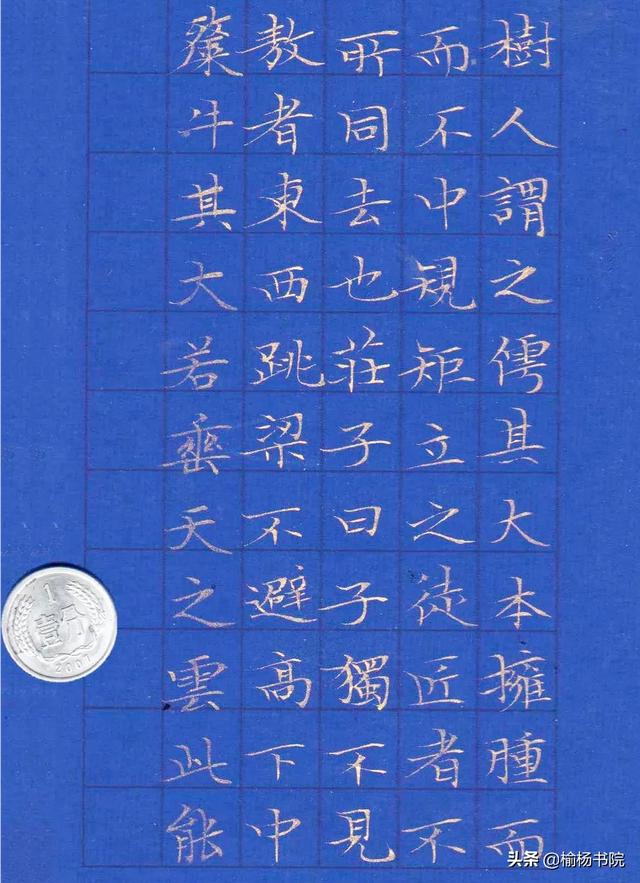 樹人謂之樗其大本擁腫而
而不中規矩立之徒匠者不
所同去也莊子曰子獨不見
敖者東西跳梁不避高下中
斄牛其大若垂天之雲此能
1
壹分
2001
头条 @榆杨书院